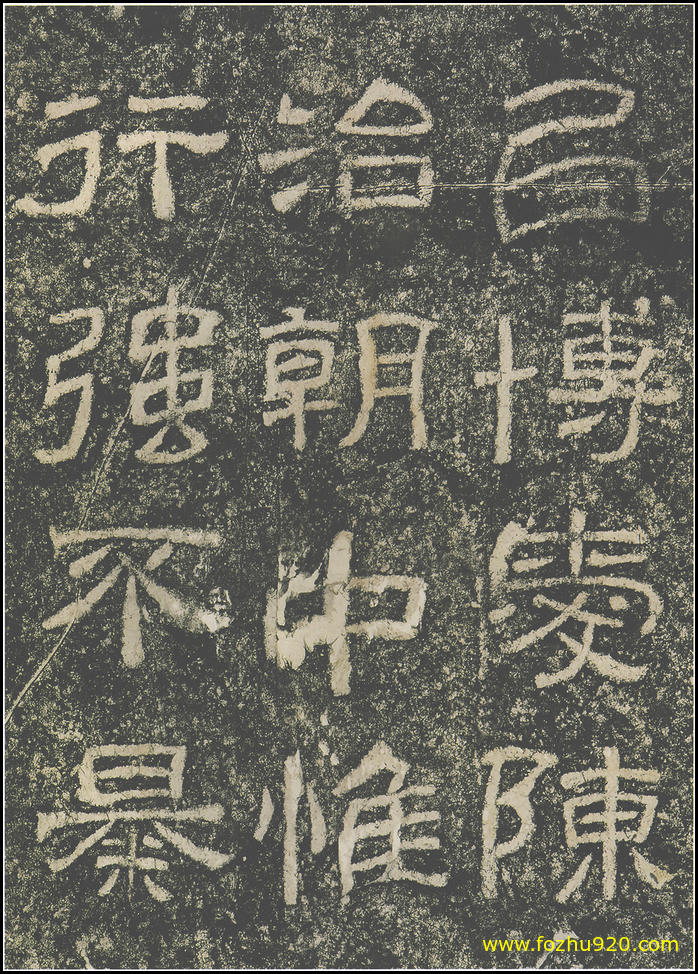 以博愛陳
治朝中惟
行強不暴
www.fozhu920.com